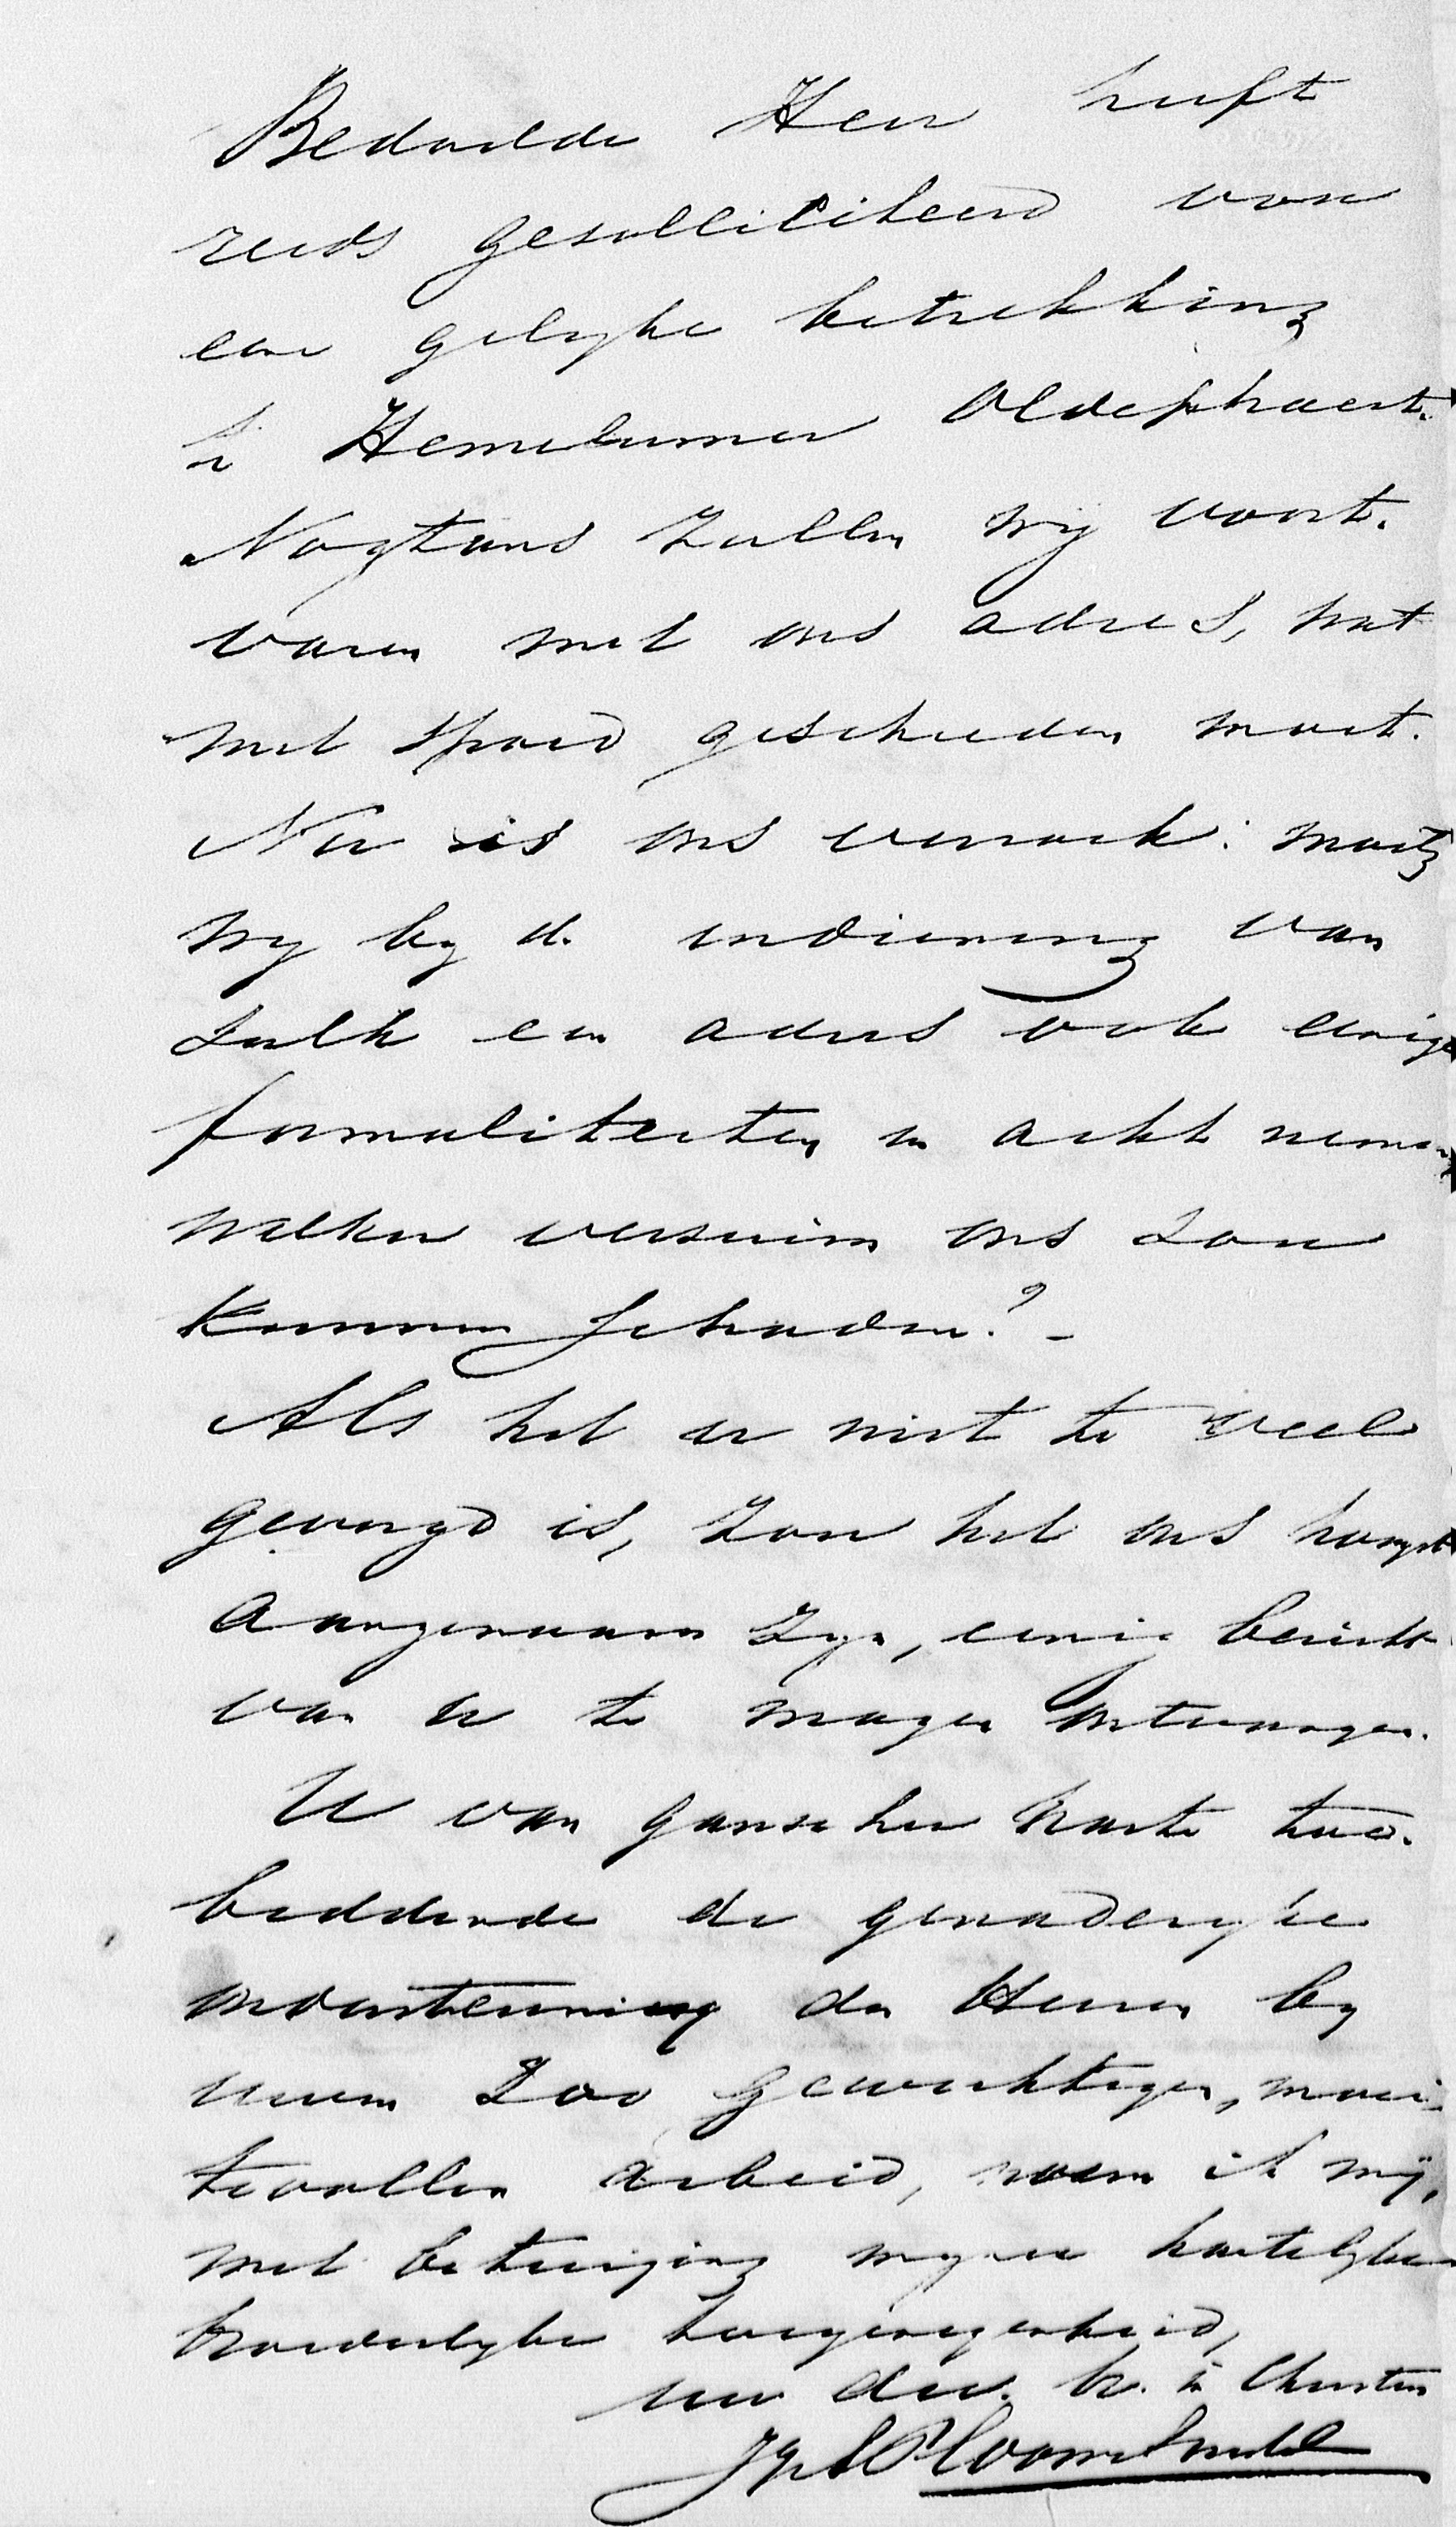 Bedoelde Heer heeft
reeds gesolliciteerd voor
eene gelyke betrekking
in Hemelumer Oldephaert.
Nogtans zullen wij voort-
varen met ons adres, wat
met spoed geschieden moet.
Nu is ons verzoek: moeten
wy by de indiening van
zulk een adres ook eenige
formaliteiten in acht nemen
welker verzuim ons zou
kunnen schaden? –
Als het u niet te veel
gevergd is, zou het ons hoogst
aangenaam zyn, eenig bericht
van u te mogen ontvangen.
U van ganscher harte toe-
biddende de genaderyke
ondersteuning des Heeren by
uwen zoo gewichtigen, moei-
tevollen arbeid, noem ik mij,
met betuiging myner hartelyke
broederlyke toegenegenheid,
uw dw. br. in Christus